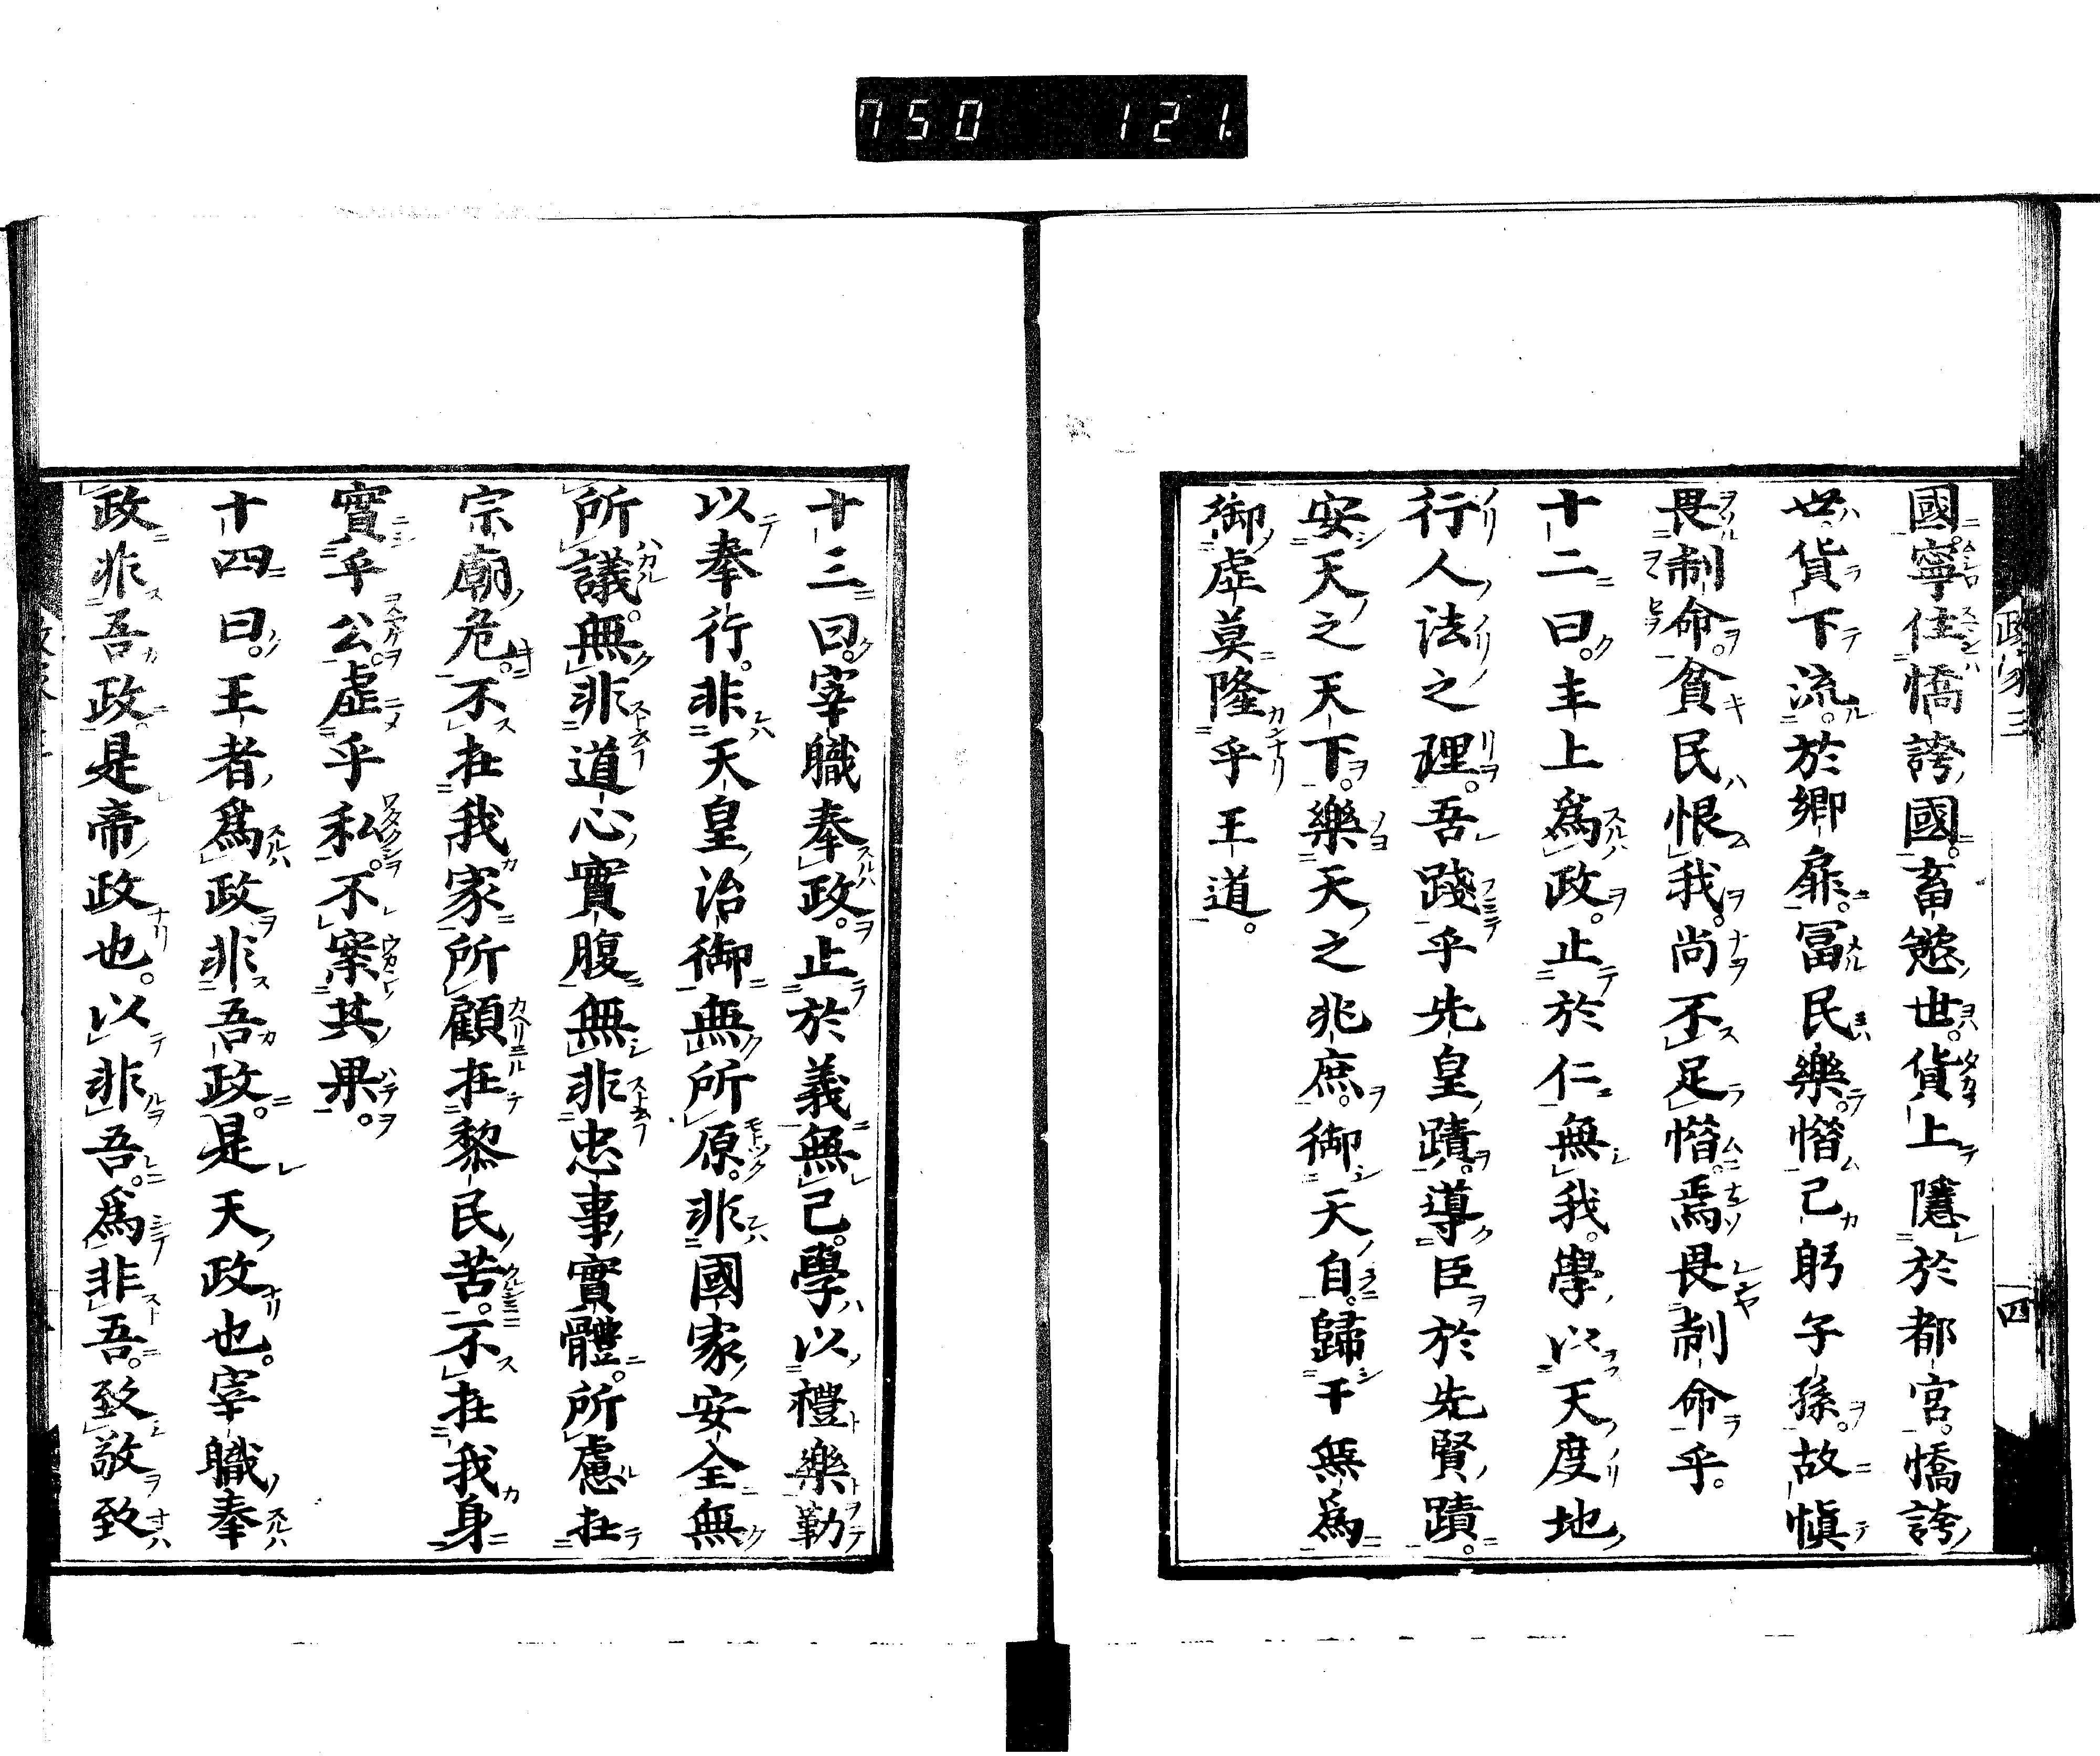 750 121.
政家二
四
國。寧住憍誇國。畜慾世。貨上隱於都宮。憍誇
世。貨下流。於鄉扉。冨民樂。憯己躬子孫。故愼
畏制命。貧民恨我。尚不足憯。焉畏制命乎。
十二曰。主上爲政。止於仁無我。學以天度地
行人法之理。吾踐乎先皇蹟。導臣於先賢蹟。
安天之天下。樂天之兆庶。御天自。歸干無爲
御虛莫隆乎王道。
十三曰。宰職奉政。止於義無己。學以禮樂勤
以奉行。非天皇治御無所原。非國家安全無
所議。無非道心實腹無非忠事實體。所慮在
宗廟危。不在我家所顧在黎民苦。不在我身
實乎公。虛乎私。不案其果。
十四曰。王者爲政非吾政。是天政也。宰職奉
政非吾政。是帝政也。以非吾。爲非吾。致敬致